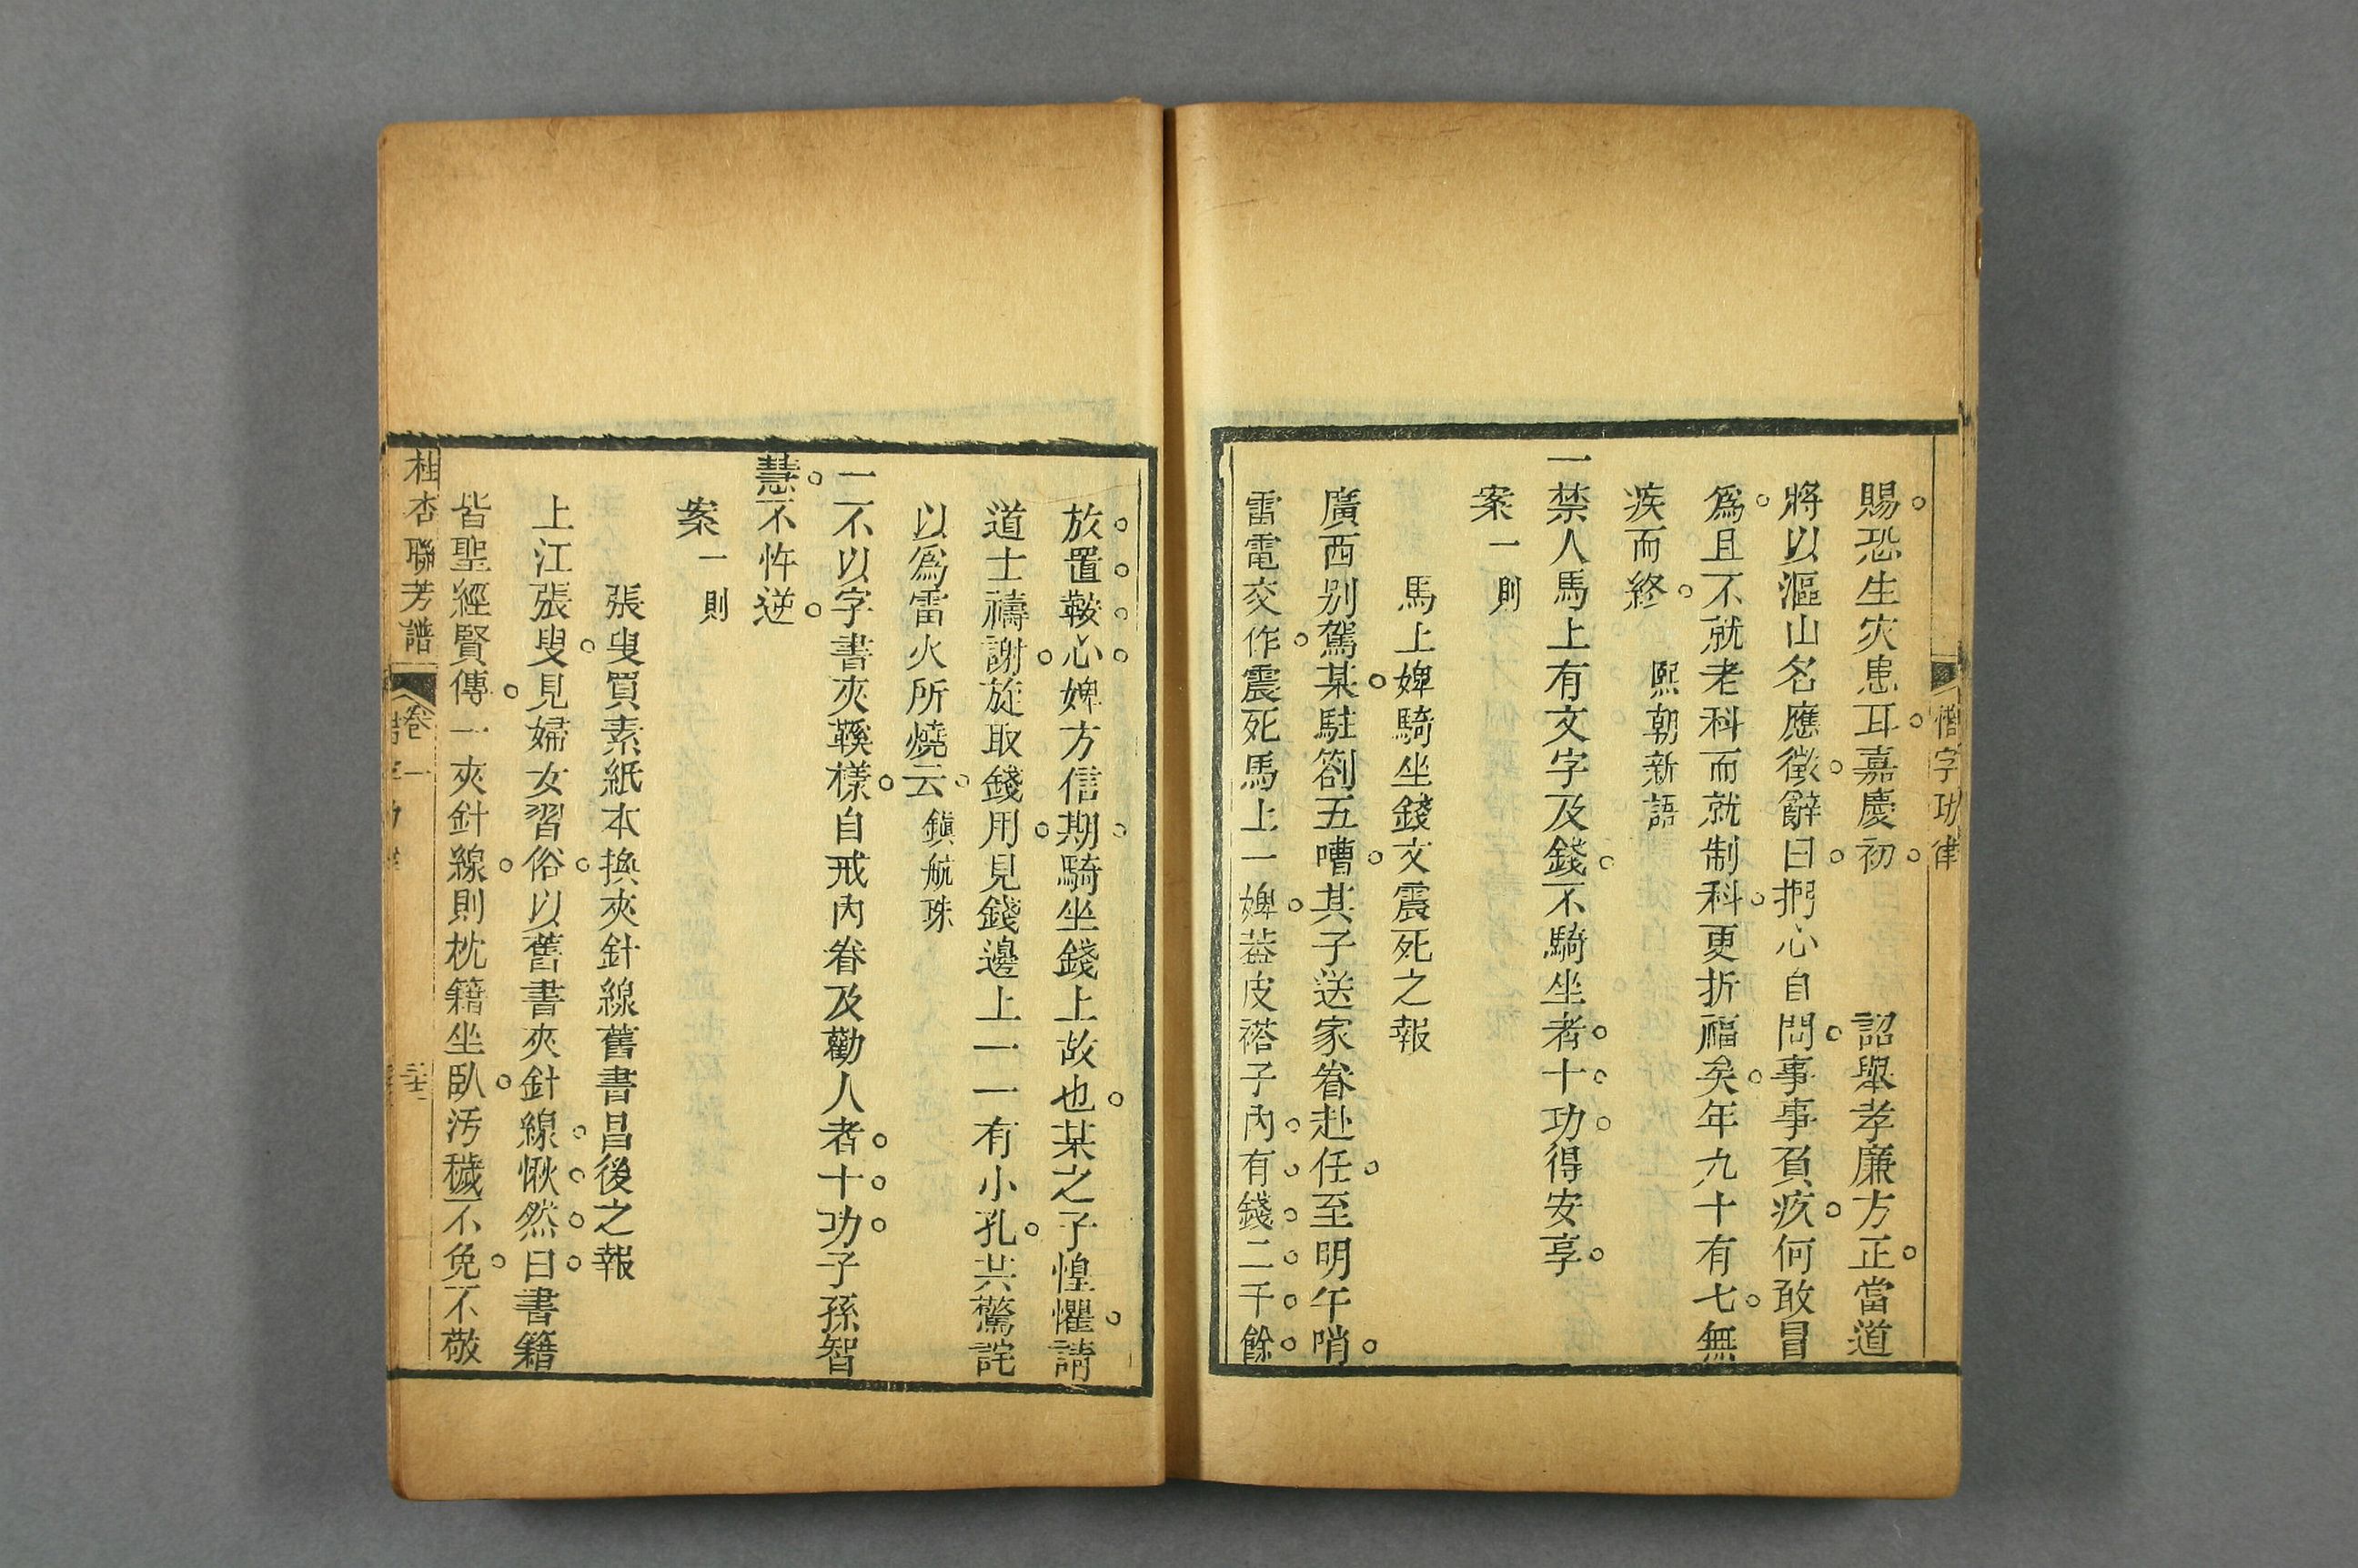 惜字功律
賜恐生灾患耳嘉慶初 詔舉孝廉方正當道
將以漚山名應徵辭曰捫心自問事事負疚何敢冒
爲且不就老科而就制科更折福矣年九十有七無
疾而終 熙朝新語
一禁人馬上有文字及錢不騎坐者十功得安享
案一則
馬上婢騎坐錢文震死之報
廣西别駕某駐劄五嘈其子送家眷赴任至明午哨
雷電交作震死馬上一婢葢皮褡子內有錢二千餘
放置鞍心婢方信期騎坐錢上故也某之子惶懼請
道士禱謝旋取錢用見錢邊上一一有小孔共驚詫
以爲雷火所燒云 鎭航珠
一不以字書夾鞵樣自戒內眷及勸人者十功子孫智
慧不忤逆
案一則
張叟買素紙本換夾針線舊書昌後之報
上江張叟見婦女習俗以舊書夾針線愀然曰書籍
皆聖經賢傳一夾針線則枕籍坐臥污穢不免不敬
桂杏聯芳譜 卷一